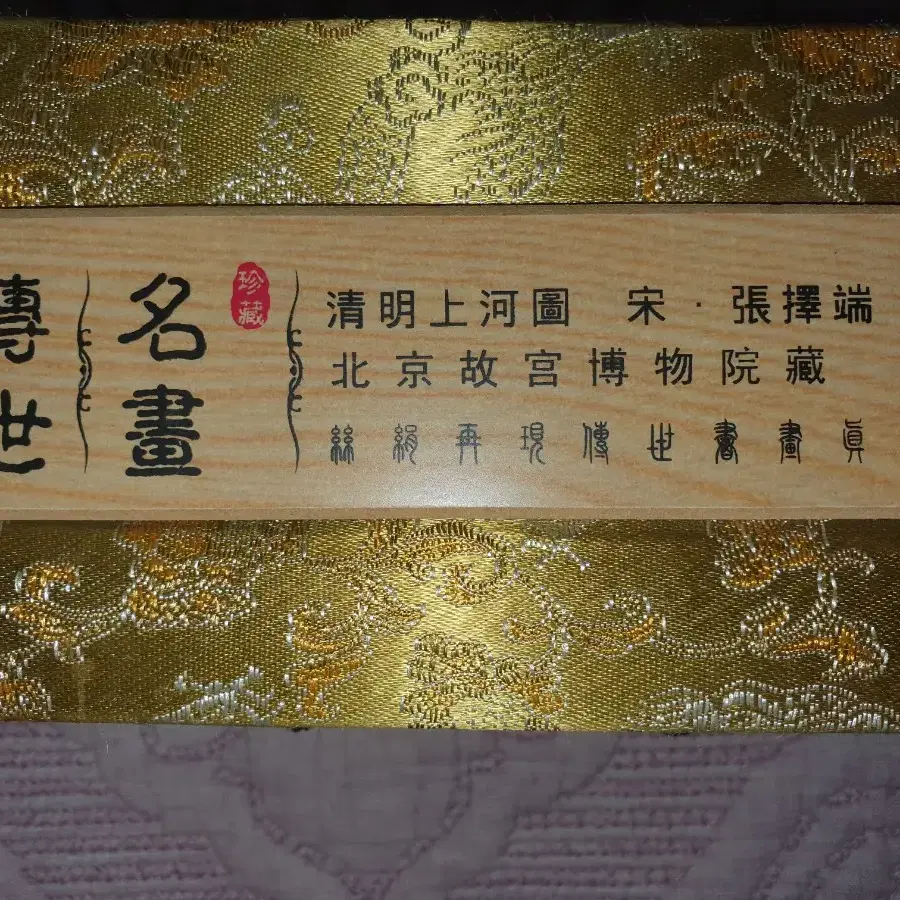 傳世
名畫
珍藏
清明上河圖 宋·張擇端
北京故宮博物院藏
絲絹再現傳世書畫眞